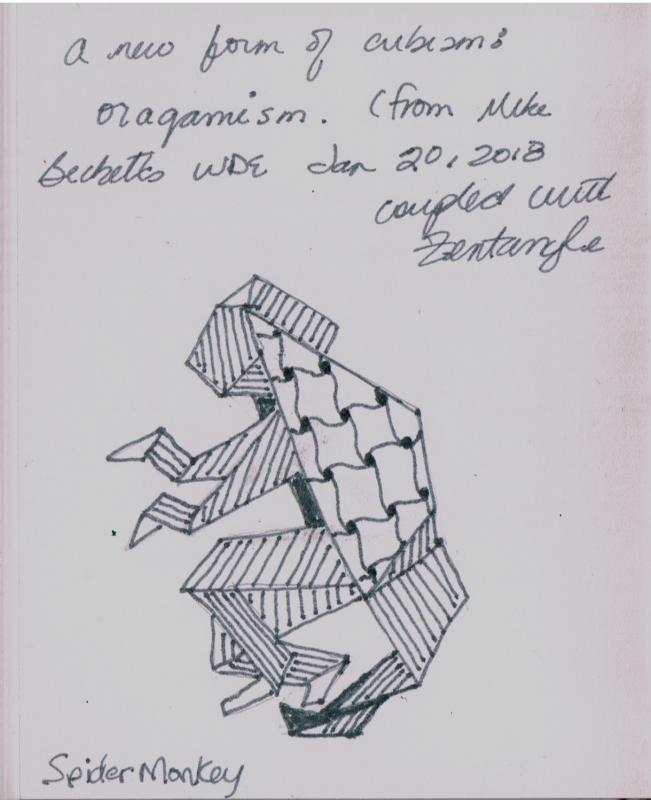 a new form of cubism:
oragamism. (from Mike
Becketts WDE Jan 20, 2018
coupled with
Zentangle
Spider Monkey